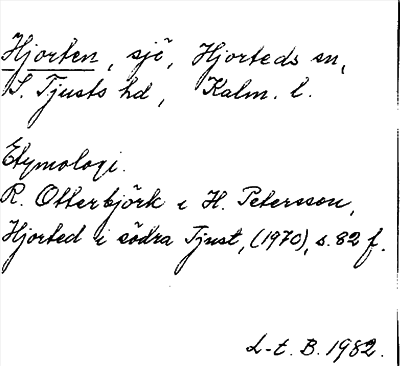 Hjorten, sjö, Hjorteds sn,
S. Tjusts hd, Kalm. l.
Etymologi.
R. Otterbjörk i H. Petersson,
Hjorted i södra Tjust, (1970), s. 82 f.
L-t. B. 1982.